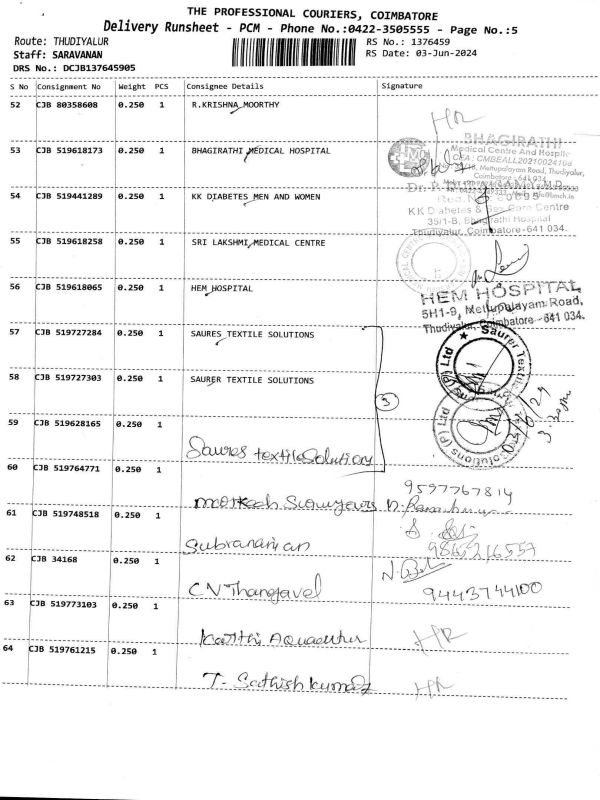 THE PROFESSIONAL COURIERS, COIMBATORE
Delivery Runsheet - PCM - Phone No.:0422-3505555 - Page No.:5
Route: THUDIYALUR
RS No.: 1376459
Staff: SARAVANAN
RS Date: 03-Jun-2024
DRS No.: DCJB137645905
S No Consignment No Weight PCS Consignee Details Signature
52 CJB 80358608 0.250 1 R.KRISHNA MOORTHY
HR
53 CJB 519618173 0.250 1 BHAGIRATHI MEDICAL HOSPITAL
BHAGIRATHI
Medical Centre And Hospit
Mettupalayam Road, Thudiyalur,
Coimbatore - 641 034
54 CJB 519441289 0.250 1 KK DIABETES MEN AND WOMEN
KK Diabetes & Sex Care Centre
35/1-B, Bhagirathi Hospital
Thudiyalur, Coimbatore-641 034.
55 CJB 519618258 0.250 1 SRI LAKSHMI MEDICAL CENTRE
56 CJB 519618065 0.250 1 HEM HOSPITAL
HEM HOSPITAL
5H1-9, Mettupalayam Road,
Thudiyalur, Coimbatore -641 034.
57 CJB 519727284 0.250 1 SAURES TEXTILE SOLUTIONS
58 CJB 519727303 0.250 1 SAURER TEXTILE SOLUTIONS
3
59 CJB 519628165 0.250 1
Saures textile Solution
60 CJB 519764771 0.250 1
9597767814
61 CJB 519748518 0.250 1
Subramanian
9865216557
62 CJB 34168 0.250 1
CN Thangavel
9443744100
63 CJB 519773103 0.250 1
HR
64 CJB 519761215 0.250 1
T. Sathish kumar
HR